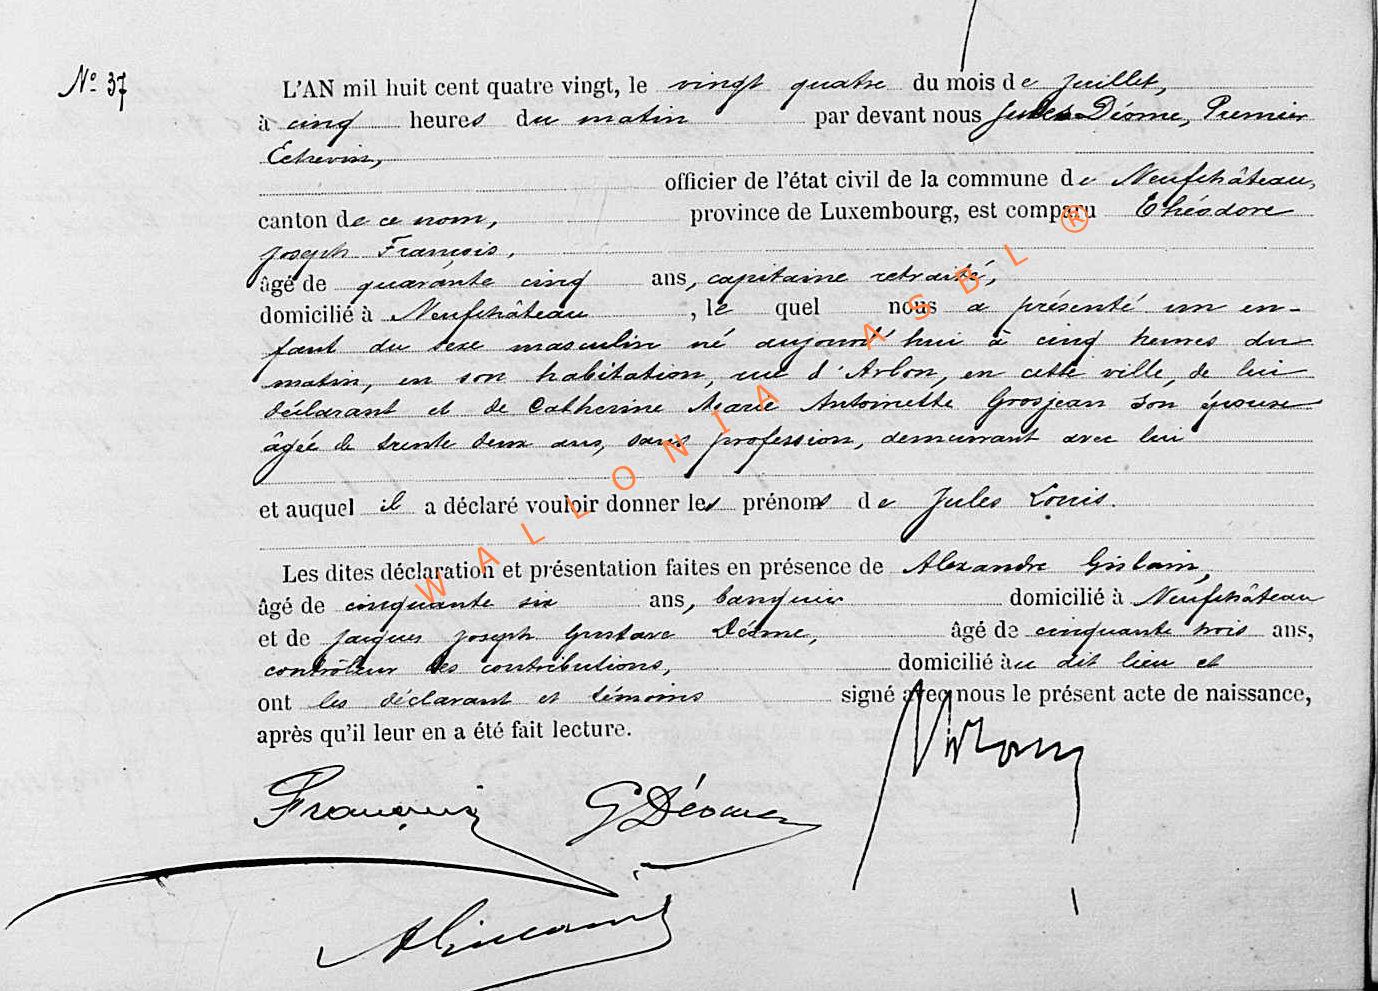 N° 37
L'AN mil huit cent quatre vingt, le vingt quatre du mois de Juillet,
à cinq heures du matin par devant nous Jules Déome, Premier
Echevin,
officier de l'état civil de la commune de Neufchâteau,
canton de ce nom, province de Luxembourg, est comparu Théodore
Joseph François,
âgé de quarante cinq ans, capitaine retraité,
domicilié à Neufchâteau, le quel nous a présenté un en-
fant du sexe masculin né aujourd'hui à cinq heures du
matin, en son habitation, rue d'Arlon, en cette ville, de lui
déclarant et de Catherine Marie Antoinette Grosjean son épouse
âgée de trente deux ans, sans profession, demeurant avec lui
et auquel il a déclaré vouloir donner les prénoms de Jules Louis.
Les dites déclaration et présentation faites en présence de Alexandre Gislain,
âgé de cinquante six ans, banquier domicilié à Neufchâteau
et de Jacques Joseph Gustave Déome, âgé de cinquante trois ans,
contrôleur des contributions, domicilié au dit lieu et
ont les déclarant et témoins signé avec nous le présent acte de naissance,
après qu'il leur en a été fait lecture.
François G Déome
WALLONIA ASBL ®